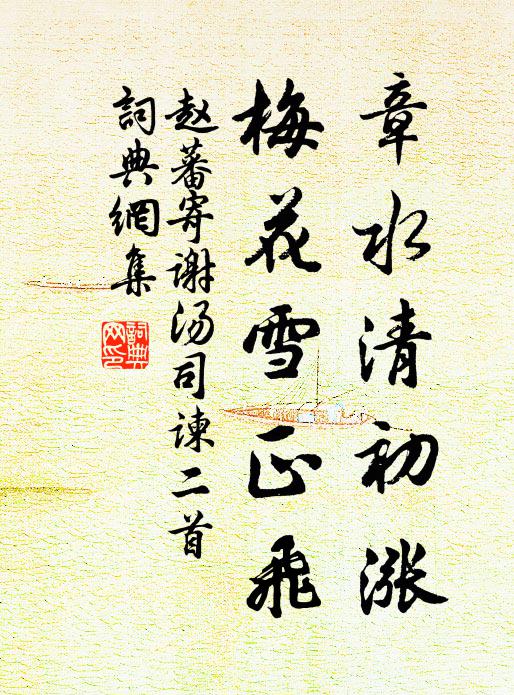 章水清初涨
梅花雪正飛
赵蕃寄谢汤司谏二首
詞典網集
詞典
网印